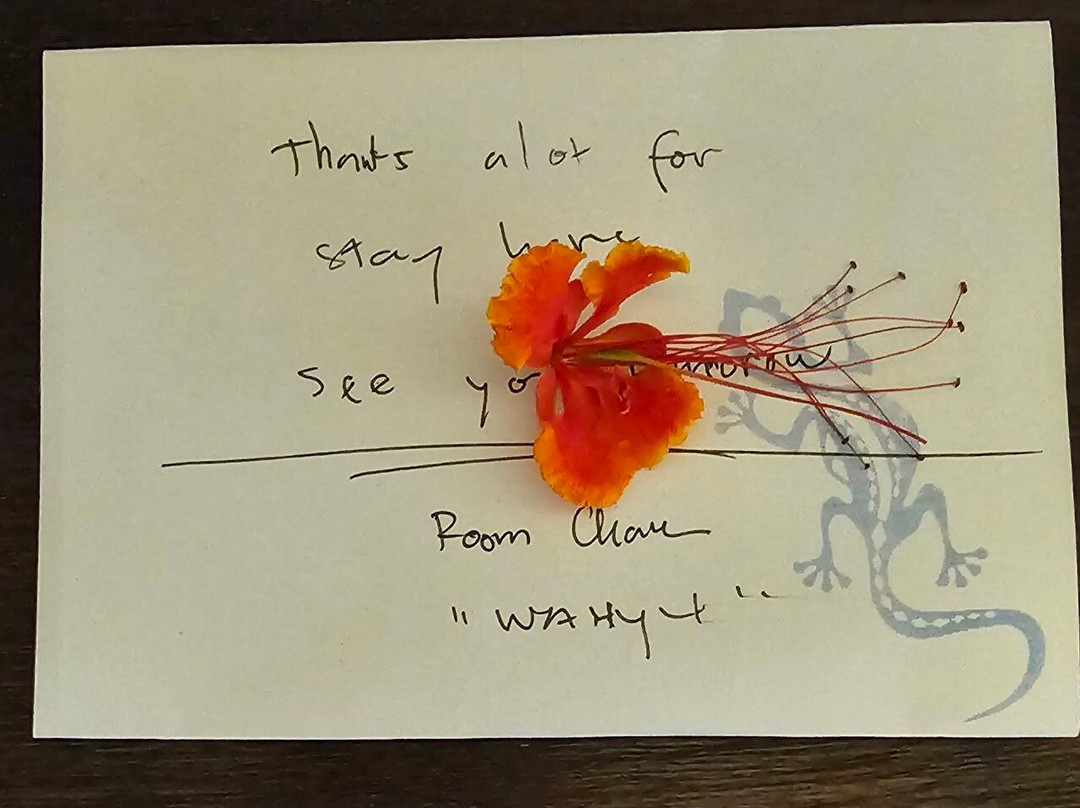 Thanks a lot for
stay here
see you tomorrow
Room Clean
"WAHYU"